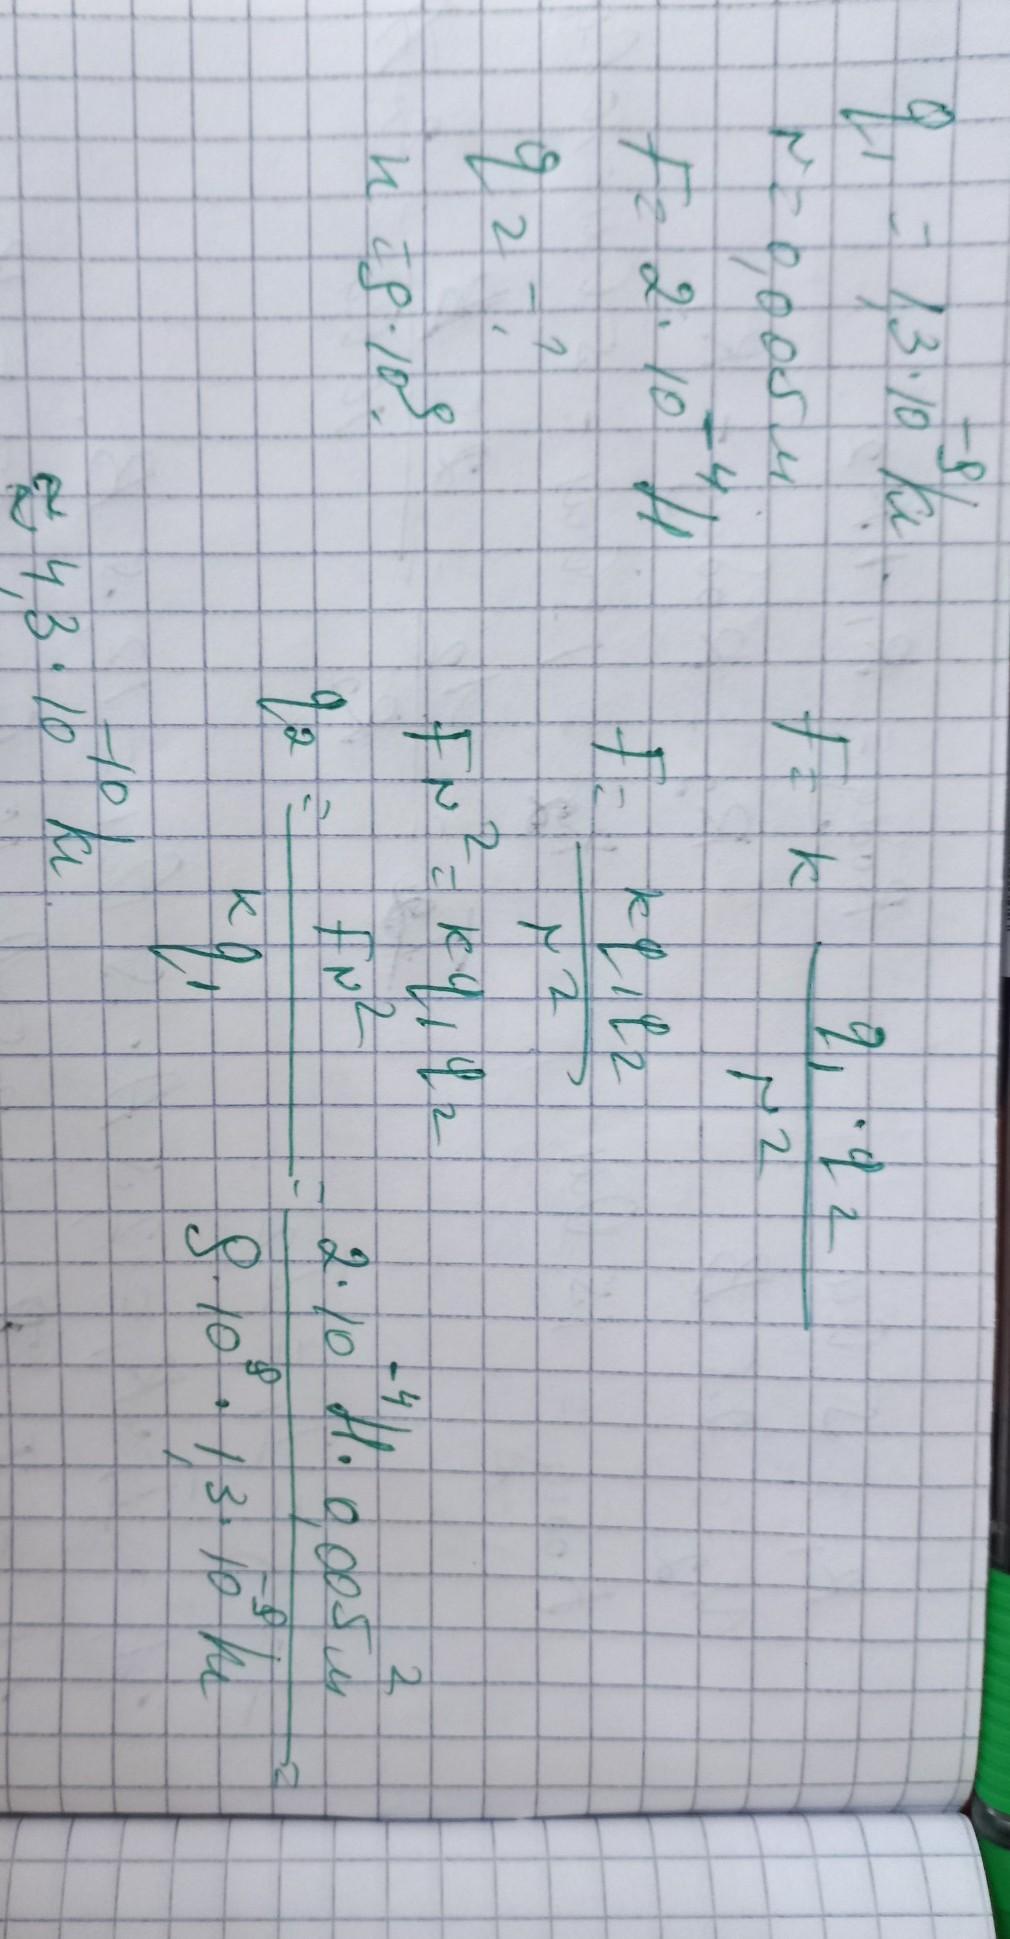 q₁ = 1,3·10⁻⁹ Кл
r = 0,005 м
F = 2·10⁻⁴ Н
q₂ - ?
k = 9·10⁹
F = k q₁·q₂ / r²
F = kq₁q₂ / r²
Fr² = kq₁q₂
q₂ = Fr² / kq₁ = 2·10⁻⁴ Н·0,005 м² / 9·10⁹·1,3·10⁻⁹ Кл ≈
≈ 4,3·10⁻¹⁰ Кл